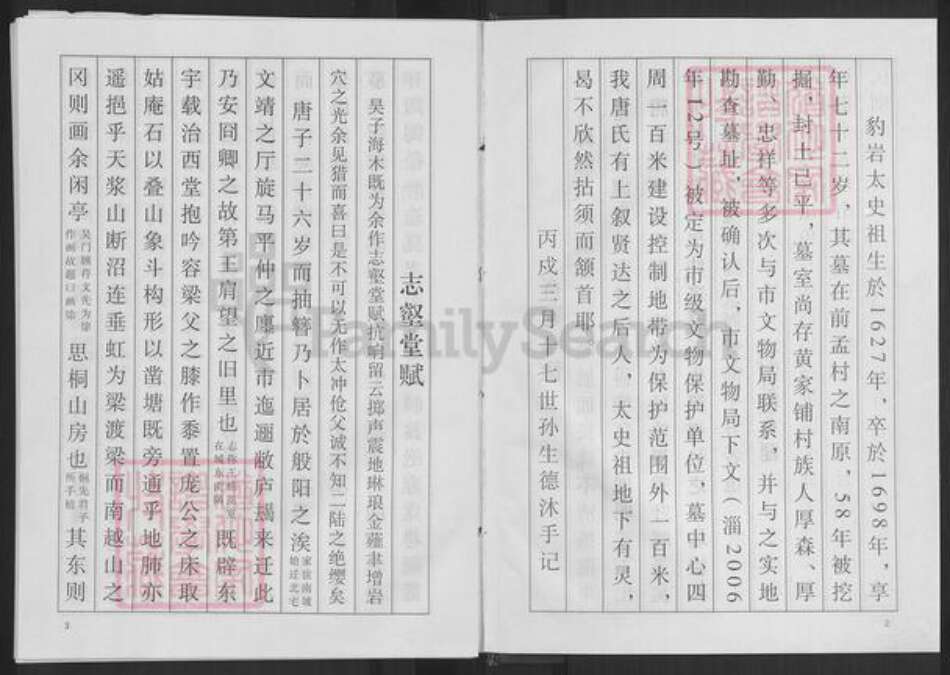 豹岩太史祖生於1627年，卒於1698年，享
年七十二岁，其墓在前孟村之南原，58年被挖
掘，封土已平，墓室尚存黄家铺村族人厚森、厚
勤、忠祥等多次与市文物局联系，并与之实地
勘查墓址，被确认后，市文物局下文（淄2006
年12号）被定为市级文物保护单位，墓中心四
周一百米建设控制地带为保护范围外一百米，
我唐氏有上叙贤达之后人，太史祖地下有灵，
曷不欣然拈须而颔首耶
丙戍三月十七世孙生德沐手记
2
志壑堂赋
吴子海木既为余作志壑堂赋抗响留云掷声震地琳琅金薤聿增岩
穴之光余见猎而喜曰是不可以无作太冲伧父诚不知二陆之绝缨矣
唐子二十六岁而抽簪乃卜居於般阳之涘家世南城始迁北宅
文靖之厅旋马平仲之廛近市迤逦敞庐蔼来迁此
乃安囧卿之故第王肩望之旧里也 在城东街 既辟东
宇载治西堂抱吟容梁父之膝作黍置庞公之床取
姑庵石以叠山象斗构形以凿塘既旁通乎地肺亦
遥挹乎天浆山断沼连垂虹为梁渡梁而南越山之
冈则画余闲亭吴门顾符文先为馀作画故题曰画馀思桐山房也桐先君子所手植其东则
3
FamilySearch